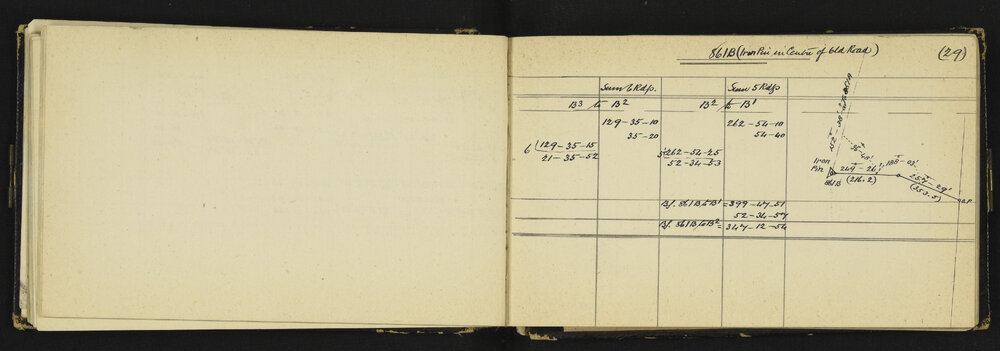 861B (Iron Pin in Centre of Old Road)
(29)
Sum 6 Rdgs.
Sum 5 Rdgs
B3 to B2
B2 to B1
129-35-10
262-54-10
35-20
54-40
6 129-35-15
21-35-52
5 262-54-25
52-34-53
Bg. 861B to B1 = 399-47-51
52-34-57
Bg. 861B to B2 = 347-12-54
Iron
Pin
861B
249-26'
(216.2)
188-03'
257-29'
(353.5)